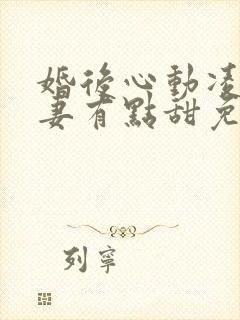 婚後心動凌
妻有點甜免
列寧